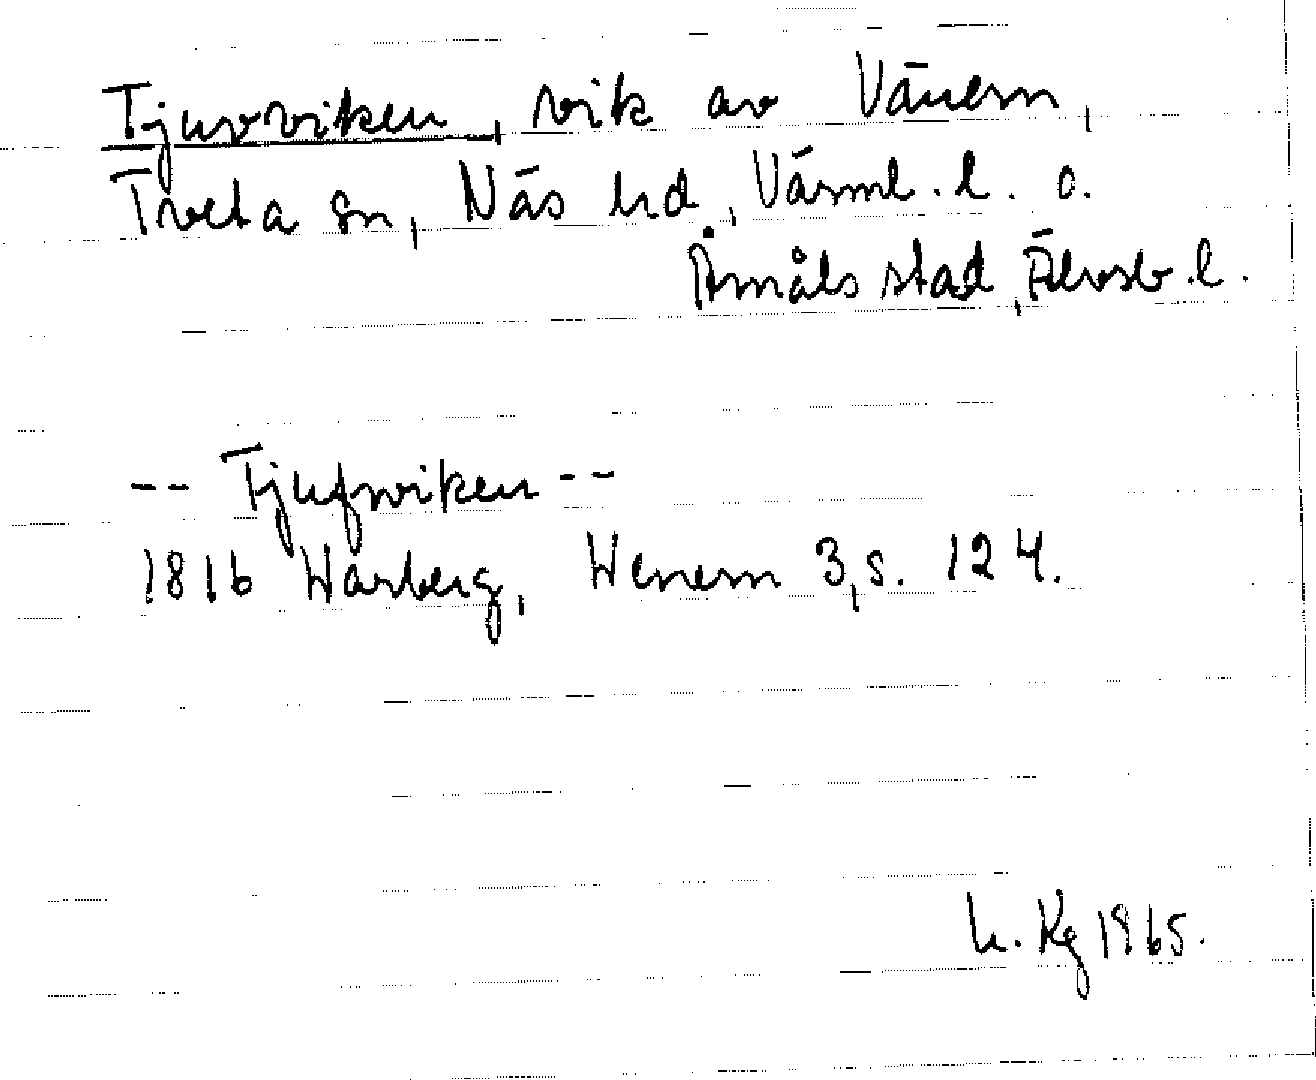 Tjuvviken, vik av Vänern,
Tveta sn, Näs hd, Värml. l. o.
Åmåls stad, Älvsb. l.
-- Tjufwiken --
1816 Warberg, Wenern 3, s. 124.
h. Kg 1965.